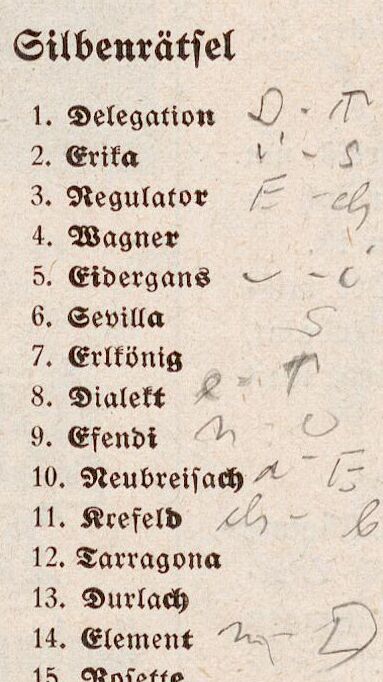 Silbenrätsel
1. Delegation D - T
2. Erika i - S
3. Regulator E - ch
4. Wagner
5. Eidergans
6. Sevilla S
7. Erlkönig
8. Dialekt e - T
9. Efendi n -
10. Neubreisach a - E
11. Krefeld ch - b
12. Tarragona
13. Durlach
14. Element - D
15. Rosette